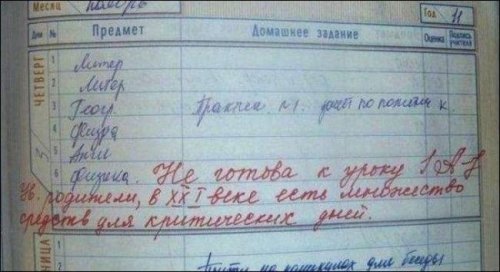 Месяц ноябрь Год 11
Дни № Предмет Домашнее задание Оценка Подпись учителя
ЧЕТВЕРГ
1 Литер
2 Литер
3 Геогр Практич. №1. по к.
4 Физра
5 Англ
6 Физика. Не готова к уроку
Ув. родители, в XXI веке есть множество
средств для критических дней.
НИЦА
1
2 на каникулах для беседы